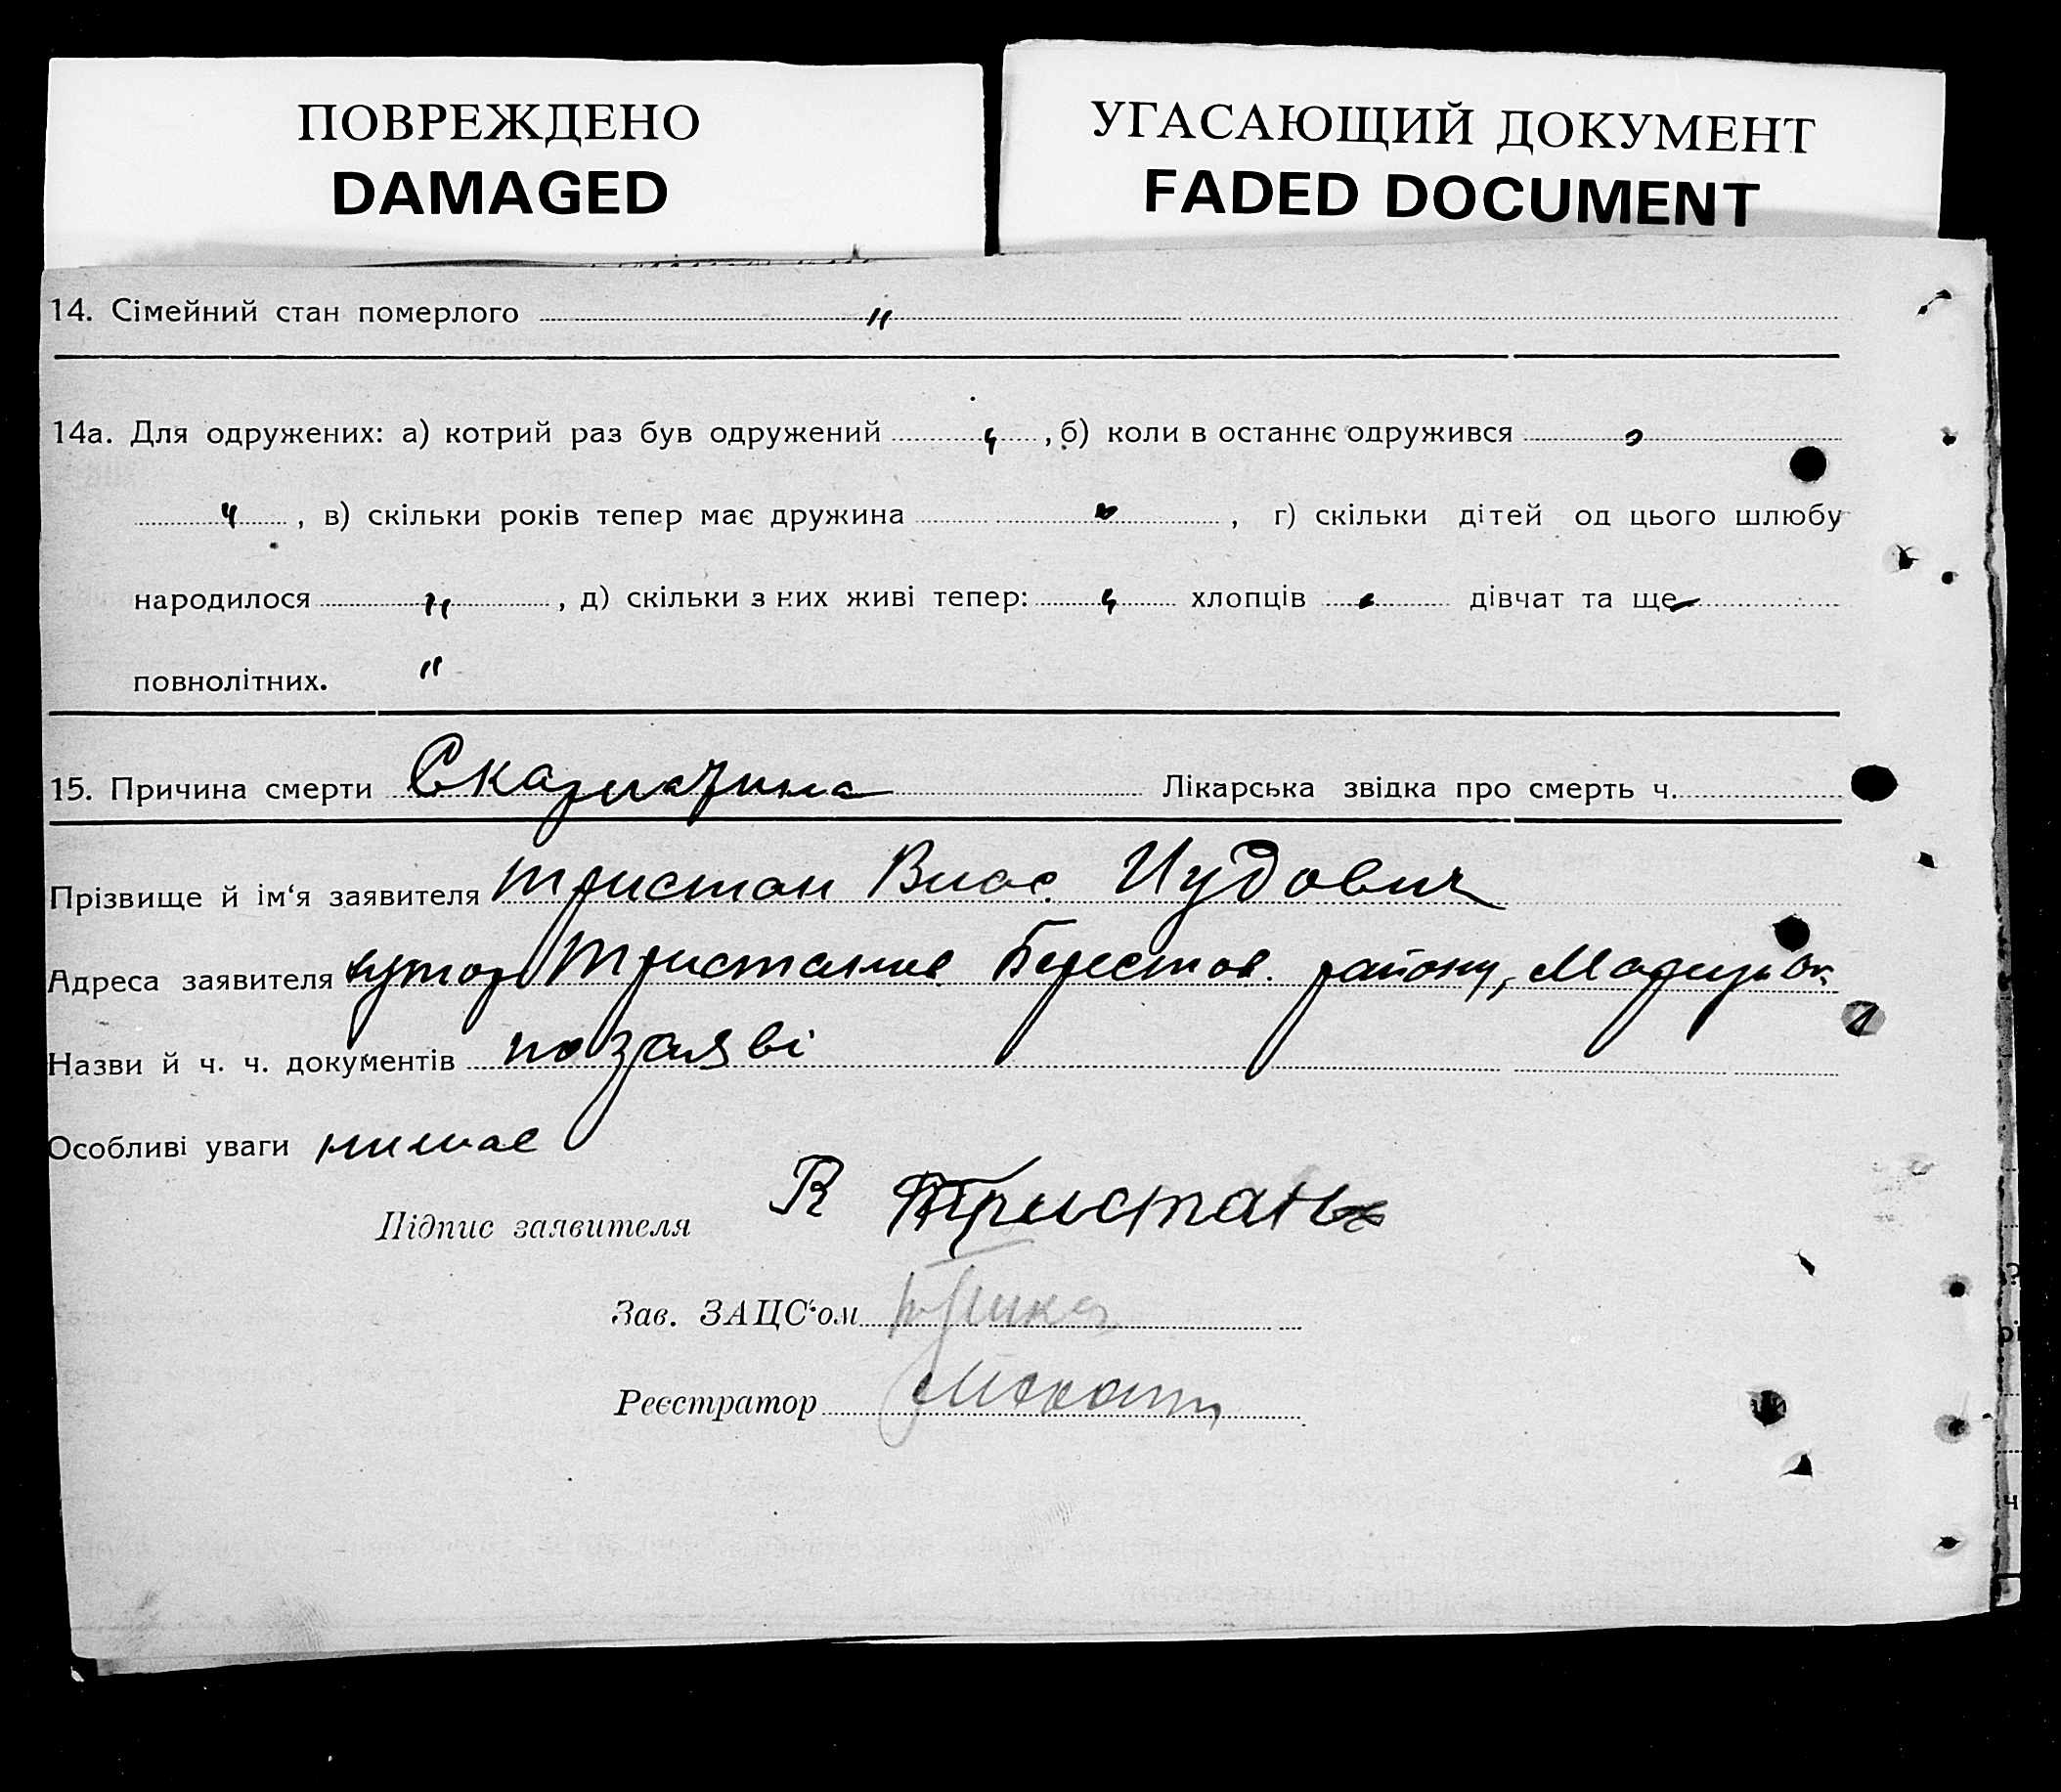 ПОВРЕЖДЕНО
DAMAGED
УГАСАЮЩИЙ ДОКУМЕНТ
FADED DOCUMENT
14. Сімейний стан померлого "
14а. Для одружених: а) котрий раз був одружений , б) коли в останнє одружився
, в) скільки років тепер має дружина , г) скільки дітей од цього шлюбу
народилося " , д) скільки з них живі тепер: хлопців дівчат та ще
повнолітних. "
15. Причина смерти Скарлатина Лікарська звідка про смерть ч.
Прізвище й ім‘я заявителя Тристан Влас Иудович
Адреса заявителя хутор Тристанив Берестов. району, Мариуп. ок.
Назви й ч. ч. документів по заяві
Особливі уваги нимае
Підпис заявителя Тристан
Зав. ЗАЦС‘ом
Реєстратор